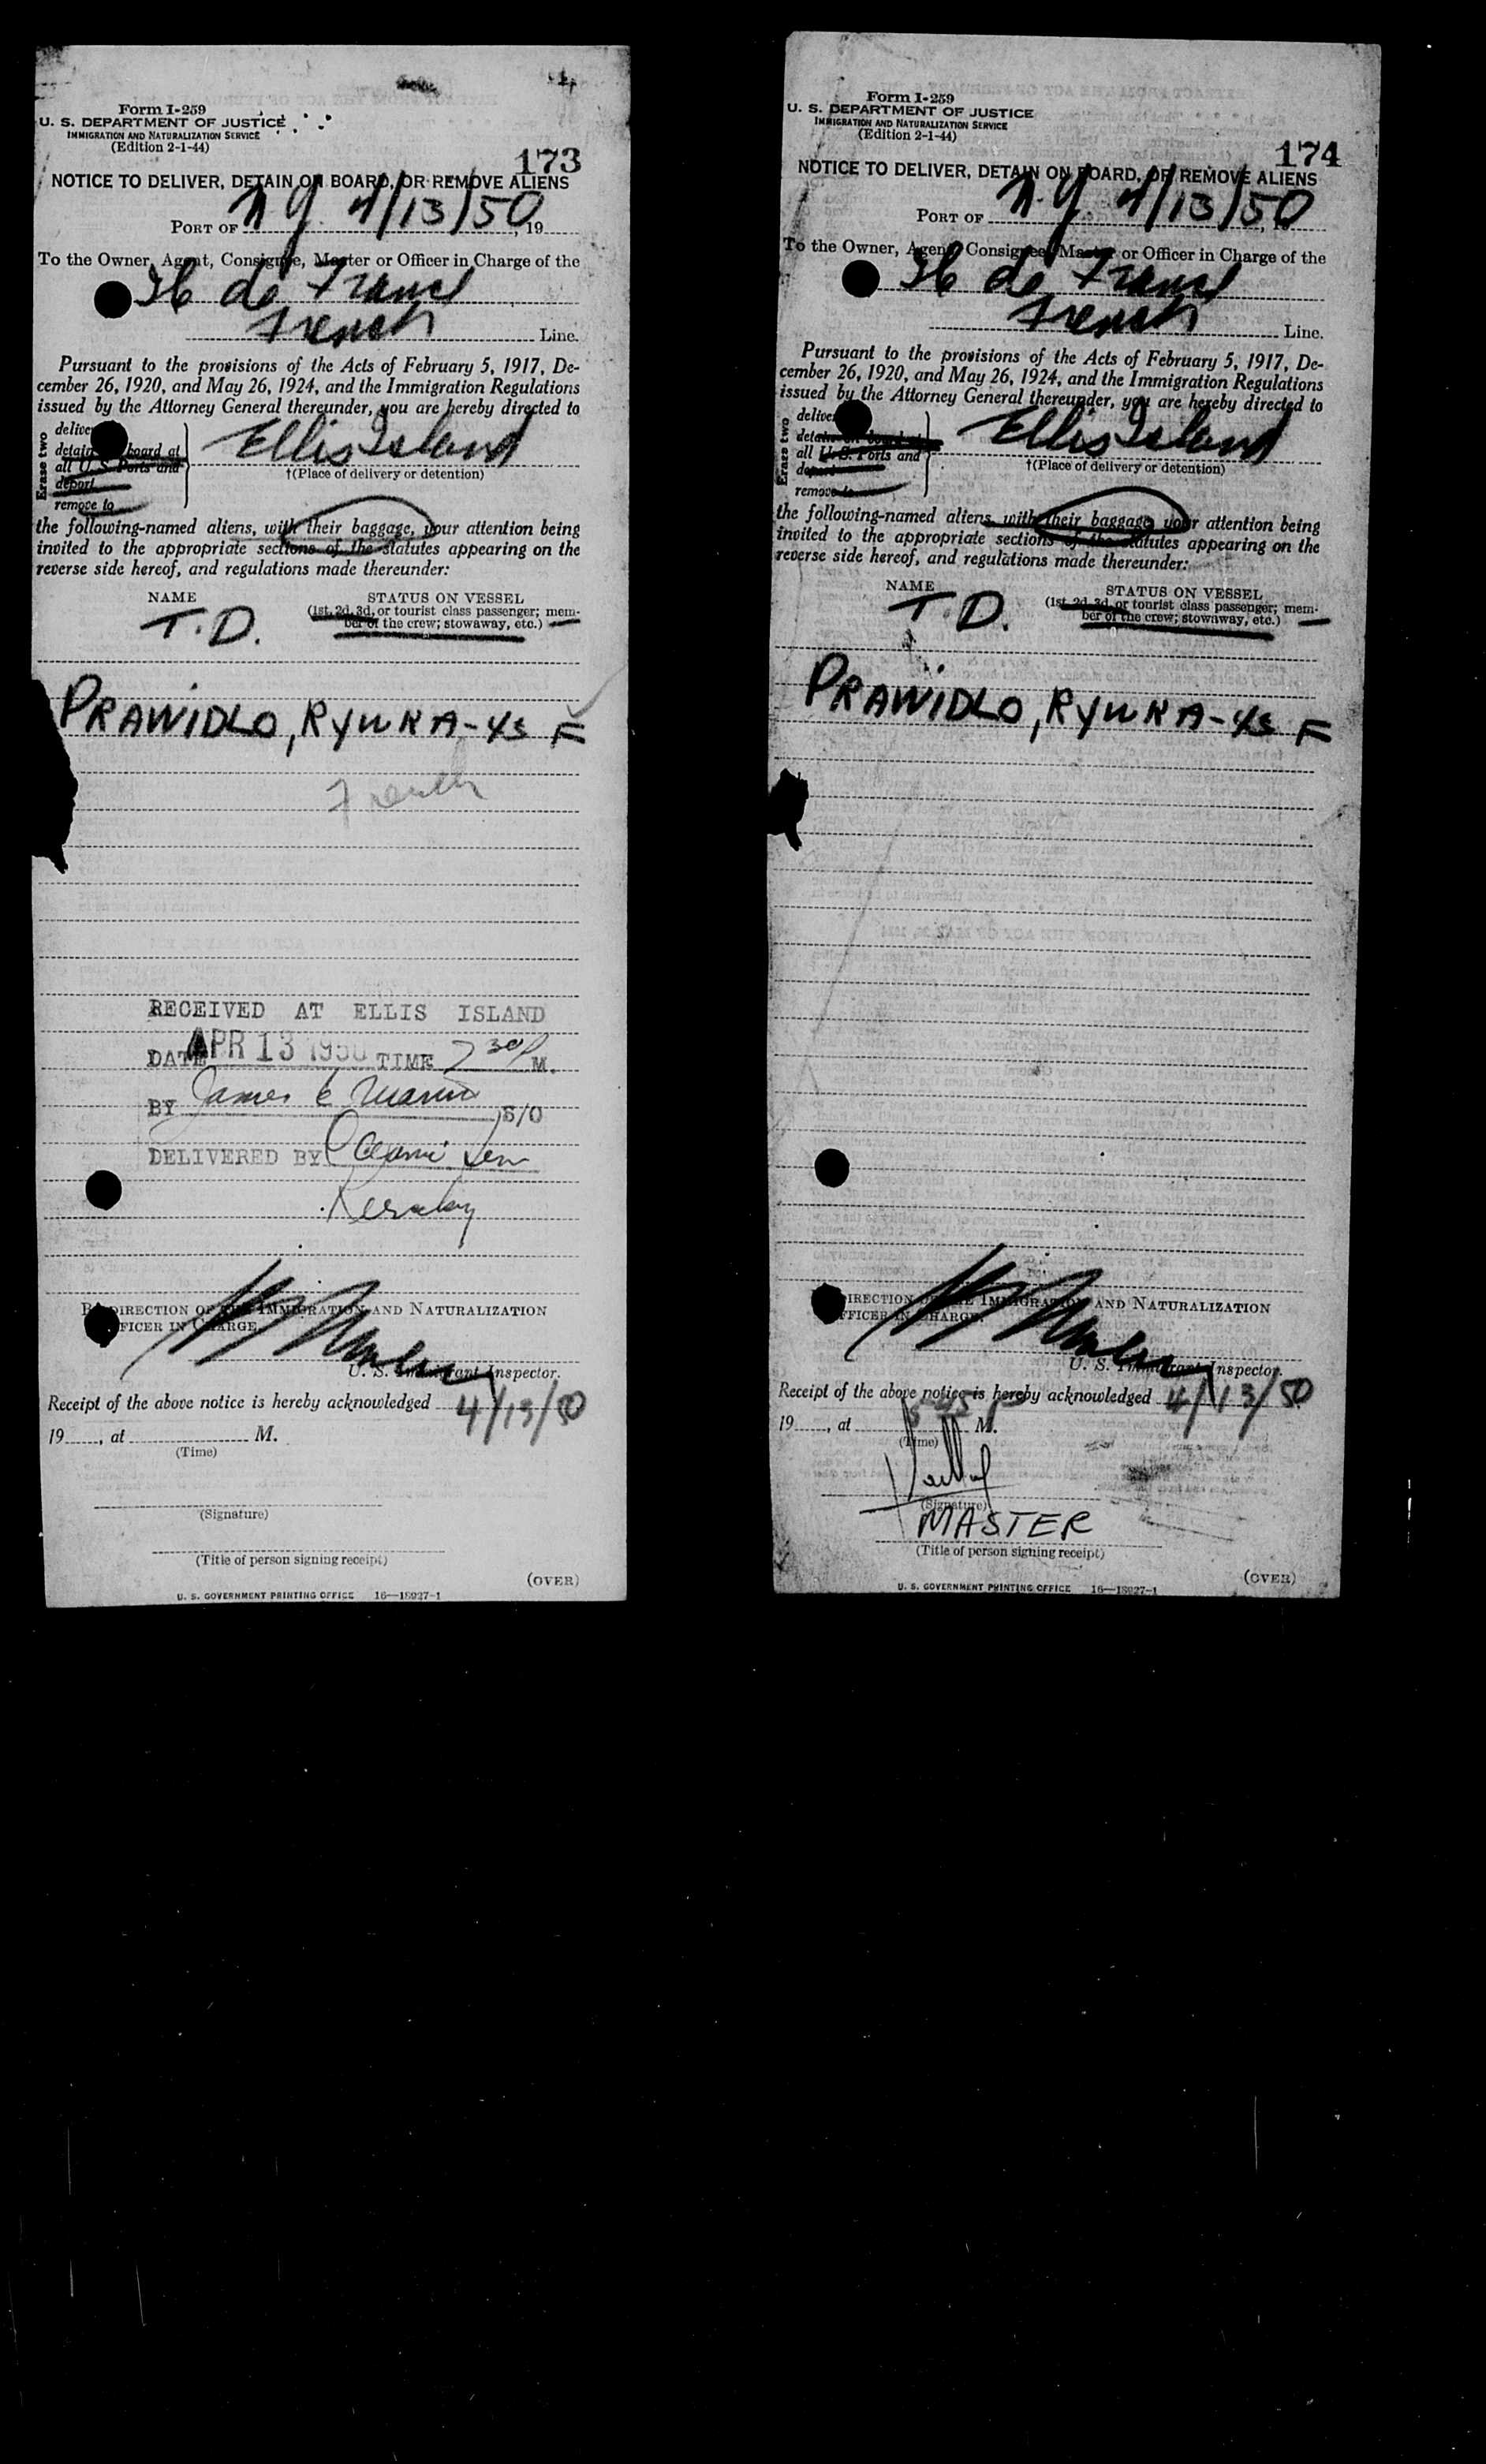 Form I-259
U. S. DEPARTMENT OF JUSTICE
IMMIGRATION AND NATURALIZATION SERVICE
(Edition 2-1-44)
173
NOTICE TO DELIVER, DETAIN ON BOARD, OR REMOVE ALIENS
PORT OF N Y 4/13/50, 19
To the Owner, Agent, Consignee, Master or Officer in Charge of the
Ile de France
French Line.
Pursuant to the provisions of the Acts of February 5, 1917, De-
cember 26, 1920, and May 26, 1924, and the Immigration Regulations
issued by the Attorney General thereunder, you are hereby directed to
Erase two
deliver
detain board at
all U. S. Ports and
deport
remove to
Ellis Island
†(Place of delivery or detention)
the following-named aliens, with their baggage, your attention being
invited to the appropriate sections of the statutes appearing on the
reverse side hereof, and regulations made thereunder:
NAME STATUS ON VESSEL
(1st, 2d, 3d, or tourist class passenger; mem-
ber of the crew; stowaway, etc.)
T.D.
PRAWIDLO, RYWKA - F
French
RECEIVED AT ELLIS ISLAND
DATE APR 13 1950 TIME 7 30 P M.
BY James S/O
DELIVERED BY
BY DIRECTION OF THE IMMIGRATION AND NATURALIZATION
OFFICER IN CHARGE.
U. S. Immigrant Inspector.
Receipt of the above notice is hereby acknowledged 4/13/50
19, at M.
(Time)
(Signature)
(Title of person signing receipt)
(OVER)
U. S. GOVERNMENT PRINTING OFFICE 16—18927-1
Form I-259
U. S. DEPARTMENT OF JUSTICE
IMMIGRATION AND NATURALIZATION SERVICE
(Edition 2-1-44)
174
NOTICE TO DELIVER, DETAIN ON BOARD, OR REMOVE ALIENS
PORT OF N.Y. 4/13/50, 19
To the Owner, Agent, Consignee, Master or Officer in Charge of the
Ile de France
French Line.
Pursuant to the provisions of the Acts of February 5, 1917, De-
cember 26, 1920, and May 26, 1924, and the Immigration Regulations
issued by the Attorney General thereunder, you are hereby directed to
Erase two
deliver
detain on board at
all U. S. Ports and
deport
remove to
Ellis Island
†(Place of delivery or detention)
the following-named aliens, with their baggage, your attention being
invited to the appropriate sections of the statutes appearing on the
reverse side hereof, and regulations made thereunder:
NAME STATUS ON VESSEL
(1st, 2d, 3d, or tourist class passenger; mem-
ber of the crew; stowaway, etc.)
T.D.
PRAWIDLO, RYWKA - F
DIRECTION OF THE IMMIGRATION AND NATURALIZATION
OFFICER IN CHARGE.
U. S. Immigrant Inspector.
Receipt of the above notice is hereby acknowledged 4/13/50
19, at M.
(Time)
(Signature)
MASTER
(Title of person signing receipt)
(OVER)
U. S. GOVERNMENT PRINTING OFFICE 16—18927-1